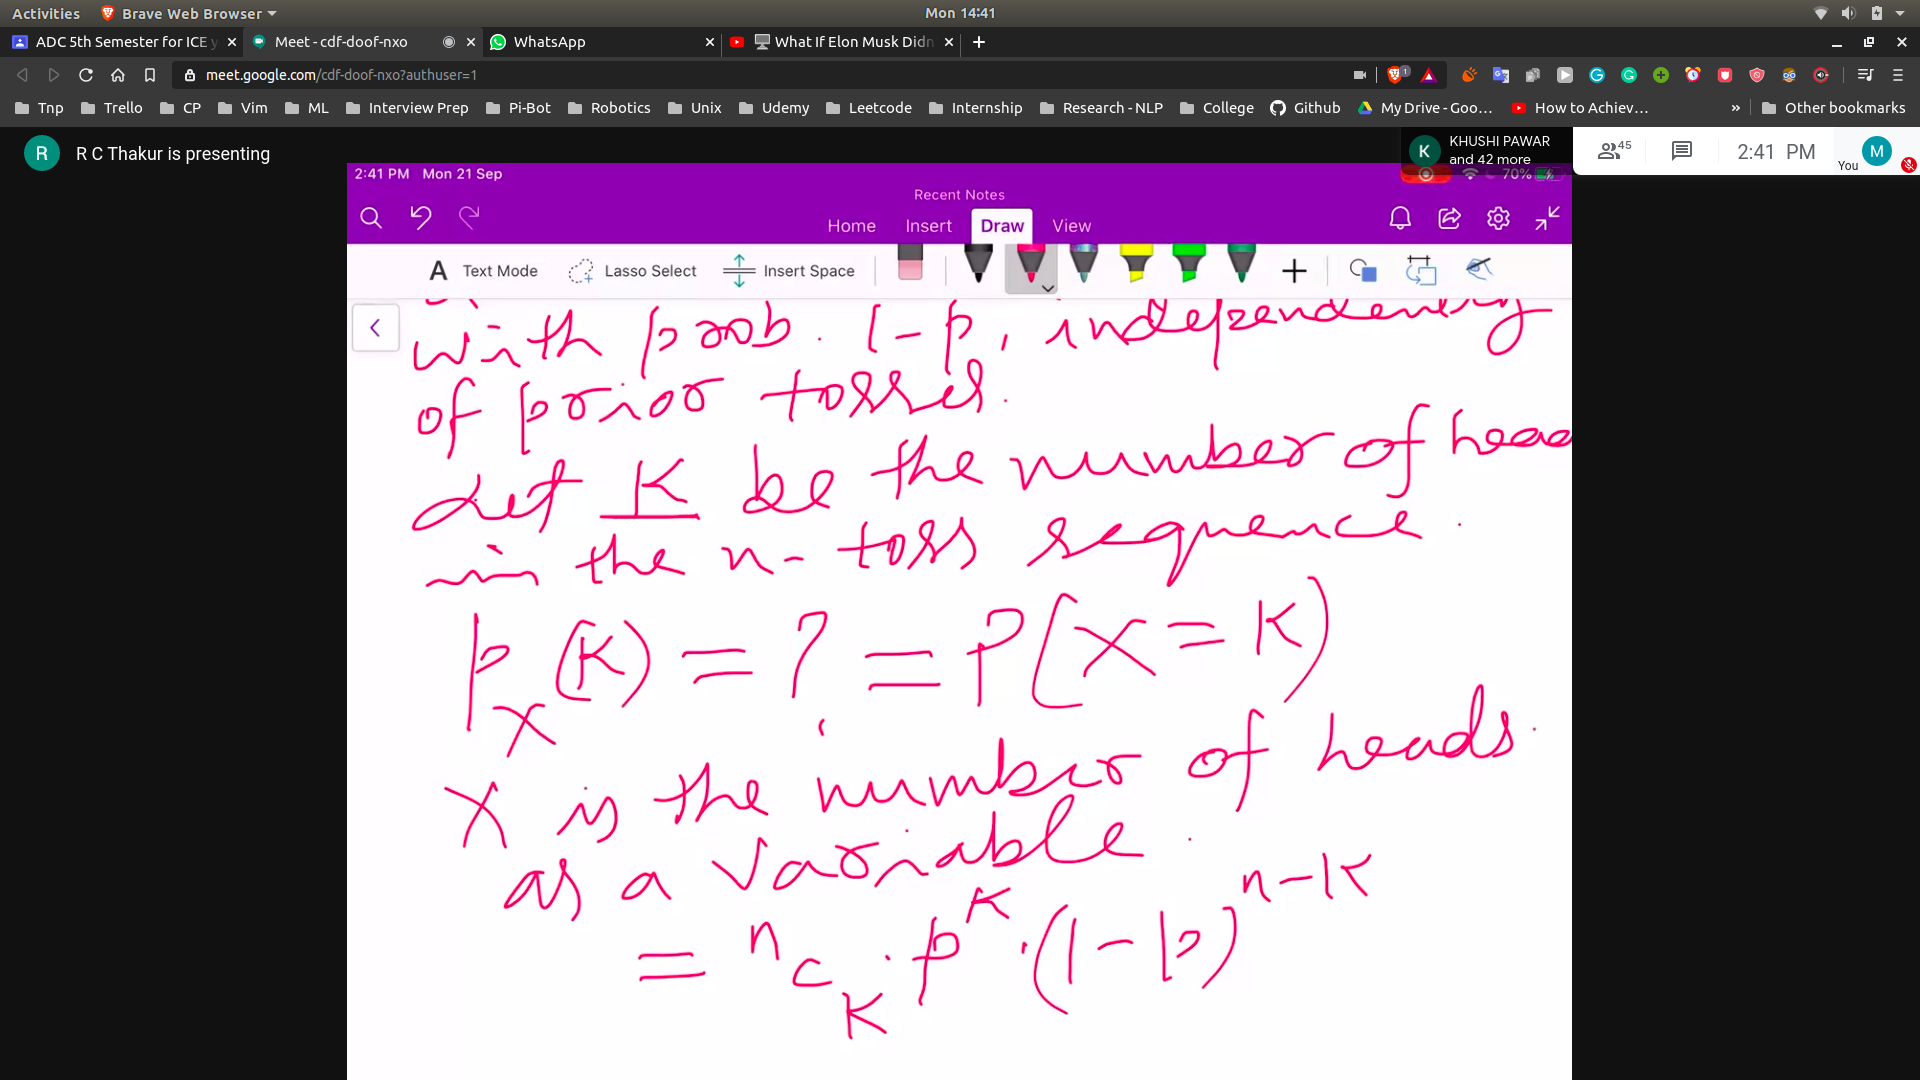 Activities Brave Web Browser Mon 14:41
ADC 5th Semester for ICE y Meet - cdf-doof-nxo WhatsApp What If Elon Musk Didn
meet.google.com/cdf-doof-nxo?authuser=1
Tnp Trello CP Vim ML Interview Prep Pi-Bot Robotics Unix Udemy Leetcode Internship Research - NLP College Github My Drive - Goo… How to Achiev… » Other bookmarks
R R C Thakur is presenting
K KHUSHI PAWAR and 42 more
45 2:41 PM You M
2:41 PM Mon 21 Sep 70%
Recent Notes
Home Insert Draw View
A Text Mode Lasso Select Insert Space
with prob. 1-p, independently
of prior tosses.
Let K be the number of head
in the n-toss sequence.
p_X(K) = ? = P(X = K)
X is the number of heads.
as a variable.
= ⁿC_K · p^K · (1-p)^(n-K)